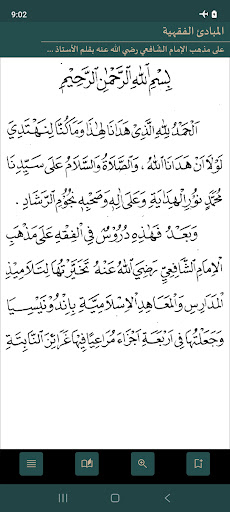 9:02
المبادئ الفقهية
على مذهب الإمام الشافعي رضي الله عنه بقلم الأستاذ ...
بِسْمِ اللهِ الرَّحْمٰنِ الرَّحِيْمِ
اَلْحَمْدُ لِلّٰهِ الَّذِيْ هَدَانَا لِهٰذَا وَمَا كُنَّا لِنَهْتَدِيَ
لَوْلَا اَنْ هَدَانَا اللهُ . وَالصَّلَاةُ وَالسَّلَامُ عَلَى سَيِّدِنَا
مُحَمَّدٍ نُوْرِ الْهِدَايَةِ وَعَلَى اٰلِهِ وَصَحْبِهِ نُجُوْمِ الرَّشَادِ .
وَبَعْدُ فَهٰذِهِ دُرُوْسٌ فِي الْفِقْهِ عَلَى مَذْهَبِ
الْاِمَامِ الشَّافِعِيِّ رَضِيَ اللهُ عَنْهُ تَخَيَّرْتُهَا لِتَلَامِيْذِ
الْمَدَارِسِ وَالْمَعَاهِدِ الْاِسْلَامِيَّةِ بِاِنْدُوْنَيْسِيَا
وَجَعَلْتُهَا فِي اَرْبَعَةِ اَجْزَاءٍ مُرَاعِيًا فِيْهَا غَرَائِزَ النَّابِتَةِ